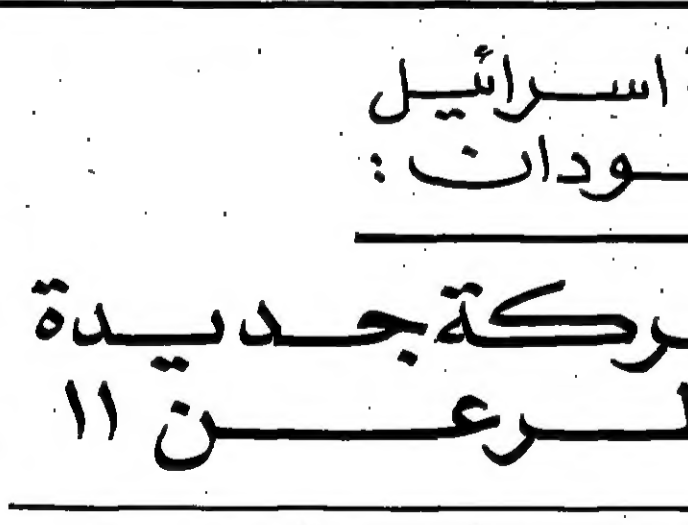 اسرائيل
ودان :
ركة جديدة
رعن ١١